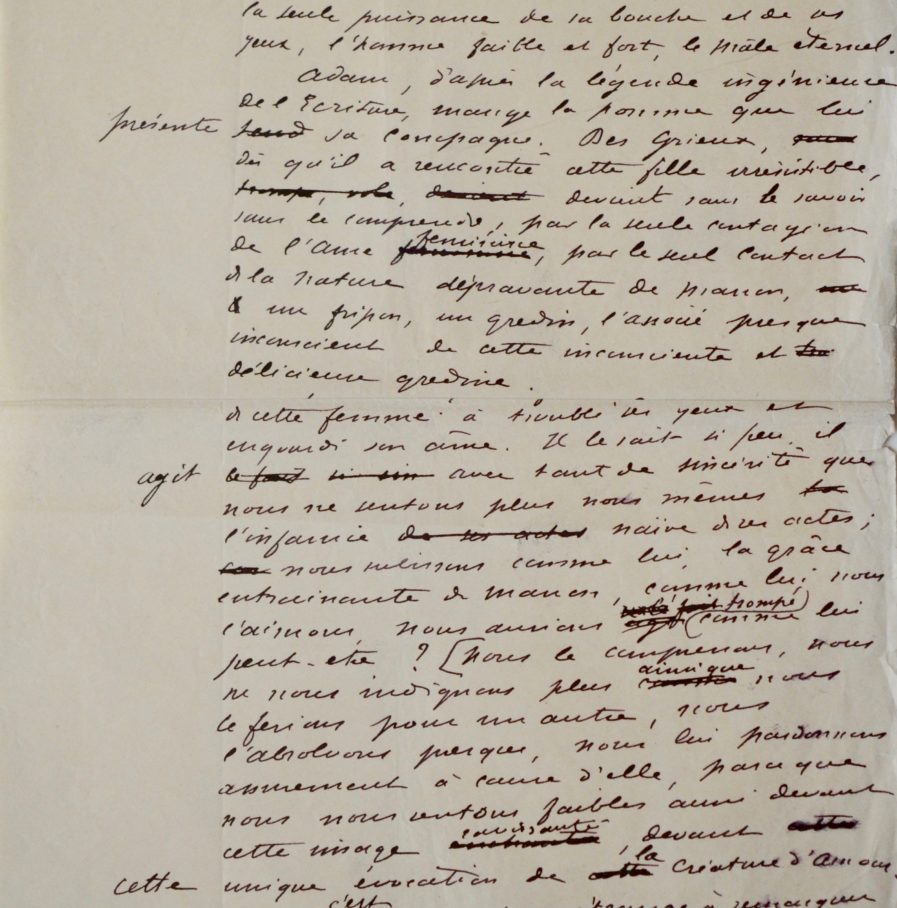 la seule puissance de sa bouche et de ses
yeux, l'homme faible et fort, le mâle éternel.
Adam, d'après la légende ingénieuse
de l'Ecriture, mange la pomme que lui
présente tend sa compagne. Des Grieux,
dès qu'il a rencontré cette fille irrésistible,
trompe, vole, devient devient sans le savoir
sans le comprendre, par la seule contagion
de l'âme féminine, par le seul contact
de la nature dépravante de Manon,
un fripon, un gredin, l'associé presque
inconscient de cette inconsciente et
délicieuse gredine.
cette femme a troublé ses yeux et
engourdi son âme. Il le sait si peu, il
agit le fait si sin avec tant de sincérité que
nous ne sentons plus nous mêmes
l'infamie de ses actes naïve de ses actes;
nous subissons comme lui, la grâce
entrainante de Manon, comme lui, nous
l'aimons, nous aurions agi fait trompé (comme lui
peut-etre ? [Nous le comprenons, nous
ne nous indignons plus ainsi que comme nous
le ferions pour un autre, nous
l'absolvons presque, nous lui pardonnons
assurement à cause d'elle, parce que
nous nous sentons faibles aussi devant
cette image ravissante, devant cette
cette unique évocation de cette la créature d'amour.
c'est étrange à remarquer